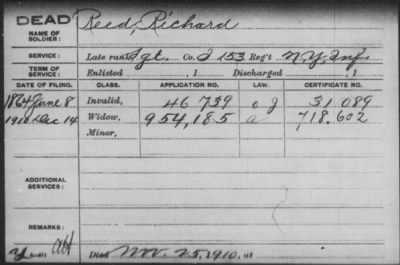 DEAD Reed, Richard
NAME OF SOLDIER:
SERVICE: Late rank Sgt. Co. I 153 Reg't N.Y. Inf.
TERM OF SERVICE: Enlisted , 1 Discharged , 1
DATE OF FILING. CLASS. APPLICATION NO. LAW. CERTIFICATE NO.
1864 June 8 Invalid, 46.739 31.089
1910 Dec 14 Widow, 954,185 a 718.602
Minor,
ADDITIONAL SERVICES:
REMARKS:
Died Nov. 25, 1910, at